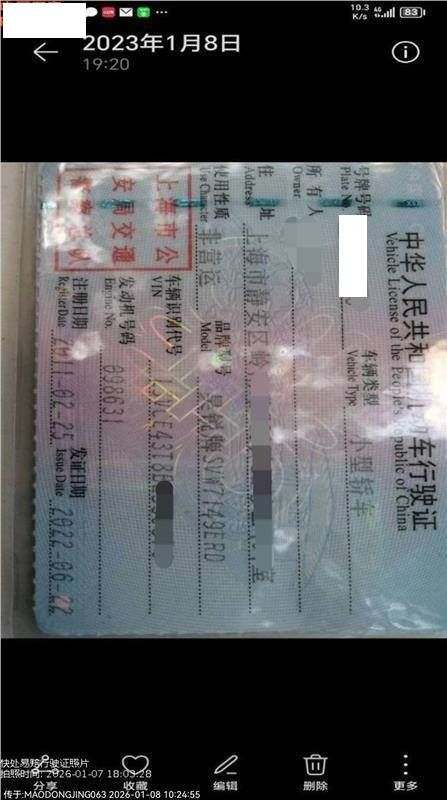 10.3 K/s 4G 83
2023年1月8日
19:20
中华人民共和 行驶证
Vehicle License of the People's Republic of China
号牌号码
Plate No.
车辆类型 小型轿车
Vehicle Type
所有人
Owner
住址 上海市静安区 室
Address
使用性质 非营运
Use Character
品牌型号 昊锐牌SVW7149ERD
Model
上海市公
安局交通
车辆识别代号
VIN
发动机号码 098631
Engine No.
注册日期 2011-02-25
Register Date
发证日期
Issue Date
快处易 行驶证照片
拍照时间: 2026-01-07 18:09:28
分享 收藏 编辑 删除 更多
传于:MAODONGJING063 2026-01-08 10:24:55